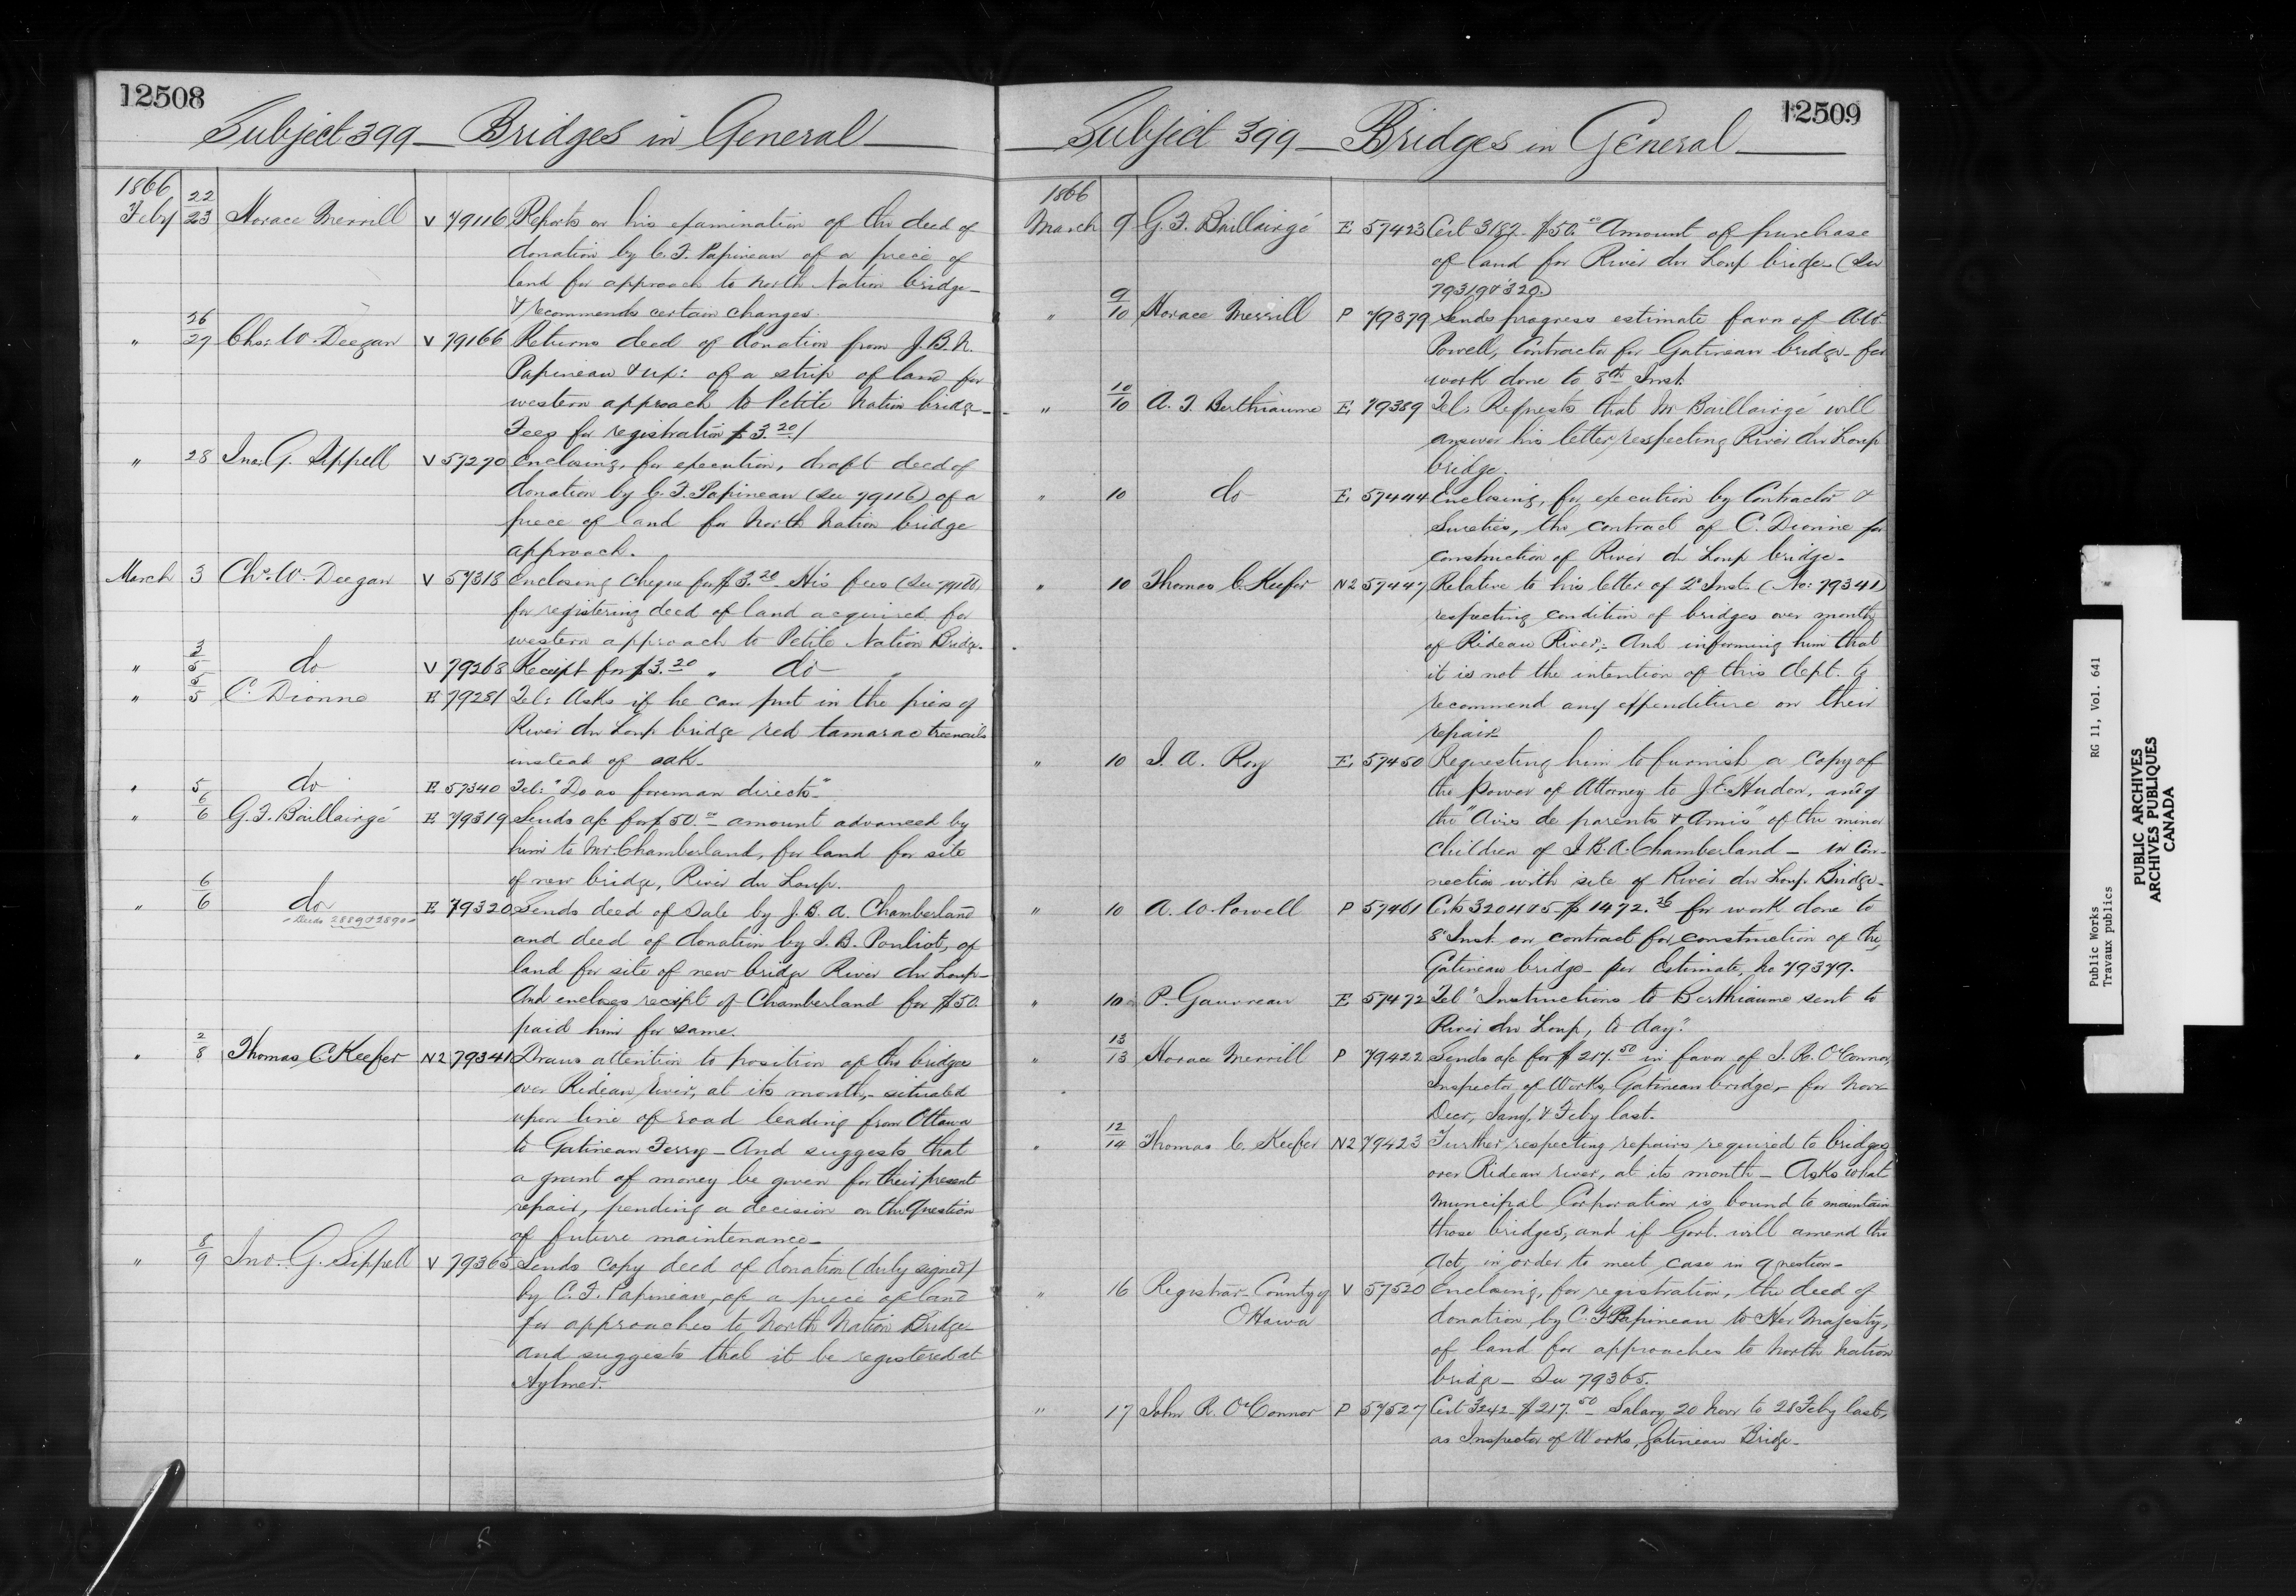 12508
Subject 399 — Bridges in General —
1866
Feby 22/23 Horace Merrill V 79116 Reports on his examination of the deed of
donation by C. F. Papineau of a piece of
land for approach to North Nation bridge —
& recommends certain changes.
" 26/27 Chs. W. Deegan V 79166 Returns deed of donation from J. B. N.
Papineau & ux: of a strip of land for
western approach to Petite Nation bridge —
Fees for registration $3.20/
" 28 Jno. G. Sippell V 57270 Enclosing, for execution, draft deed of
donation by C. F. Papineau (See 79116) of a
piece of land for North Nation bridge
approach.
March 3 Chs. W. Deegan V 57318 Enclosing Cheque for $3.20 His fees (See 79166)
for registering deed of land acquired for
western approach to Petite Nation Bridge.
" 3/5 do V 79268 Receipt for $3.20 " do "
" 5/5 C. Dionne E 79281 Tel: Asks if he can put in the piers of
River du Loup bridge red tamarac treenails
instead of oak —
" 5 do E 57340 Tel: "Do as foreman directs."
" 6/6 G. F. Baillairgé E 79319 Sends a/c for $50.00 amount advanced by
him to Mr. Chamberland, for land for site
of new bridge, River du Loup.
" 6/6 do E 79320 Sends deed of Sale by J. B. A. Chamberland
- Deeds 2889 & 2890 -
and deed of donation by J. B. Pouliot, of
land for site of new bridge River du Loup —
And encloses receipt of Chamberland for $50.
paid him for same.
" 2/8 Thomas C. Keefer N2 79341 Draws attention to position of the bridges
over Rideau River, at its mouth, — situated
upon line of road leading from Ottawa
to Gatineau Ferry — And suggests that
a grant of money be given for their present
repair, pending a decision on the question
of future maintenance —
" 8/9 Jno. G. Sippell V 79365 Sends copy deed of donation (duly signed)
by C. F. Papineau, of a piece of land
for approaches to North Nation Bridge —
and suggests that it be registered at
Aylmer.
12509
— Subject 399 — Bridges in General —
1866
March 9 G. F. Baillairgé E 57423 Cert 3182 — $50.00 Amount of purchase
of land for River du Loup bridge — (See
79319 & 320.)
" 9/10 Horace Merrill P 79379 Sends progress estimate favor of A. W.
Powell, Contractor for Gatineau bridge — for
work done to 8th Inst.
" 10/10 A. F. Berthiaume E 79389 Tel: Requests that Mr Baillairgé will
answer his letter respecting River du Loup
bridge.
" 10 do E. 57444 Enclosing, for execution by Contractor &
Sureties, the contract of C. Dionne for
construction of River du Loup bridge —
" 10 Thomas C. Keefer N2 57447 Relative to his letter of 2d Inst. (No: 79341)
respecting condition of bridges over mouth
of Rideau River, — And informing him that
it is not the intention of this dept. to
recommend any expenditure on their
repair —
" 10 J. A. Roy E. 57450 Requesting him to furnish a Copy of
the Power of Attorney to J. E. Hudon, and of
the "Avis de parents & Amis" of the minor
children of J. B. A. Chamberland — in con-
nection with site of River du Loup Bridge —
" 10 A. W. Powell P 57461 Certs 3204 & 5 $1472.26 for work done to
8th Inst. on contract for construction of the
Gatineau bridge — per Estimate, No 79379.
" 10 P. Gauvreau E 57472 Tel "Instructions to Berthiaume sent to
River du Loup, to day."
" 13/13 Horace Merrill P 79422 Sends a/c for $217.50 in favor of J. R. O'Connor,
Inspector of Works, Gatineau bridge, — for Novr
Decr, Jany, & Feby last.
" 12/14 Thomas C. Keefer N2 79423 Further respecting repairs required to bridges
over Rideau river, at its mouth — Asks what
Municipal Corporation is bound to maintain
those bridges, and if Govt. will amend the
Act, in order to meet case in question —
" 16 Registrar County of V 57520 Enclosing, for registration, the deed of
Ottawa
donation by C. F. Papineau to Her Majesty,
of land for approaches to North Nation
bridge — See 79365.
" 17 John R. O'Connor P 57527 Cert 3242 — $217.50 — Salary 20 Novr to 28 Feby last,
as Inspector of Works, Gatineau Bridge —
Public Works RG 11, Vol. 641
Travaux publics
PUBLIC ARCHIVES
ARCHIVES PUBLIQUES
CANADA